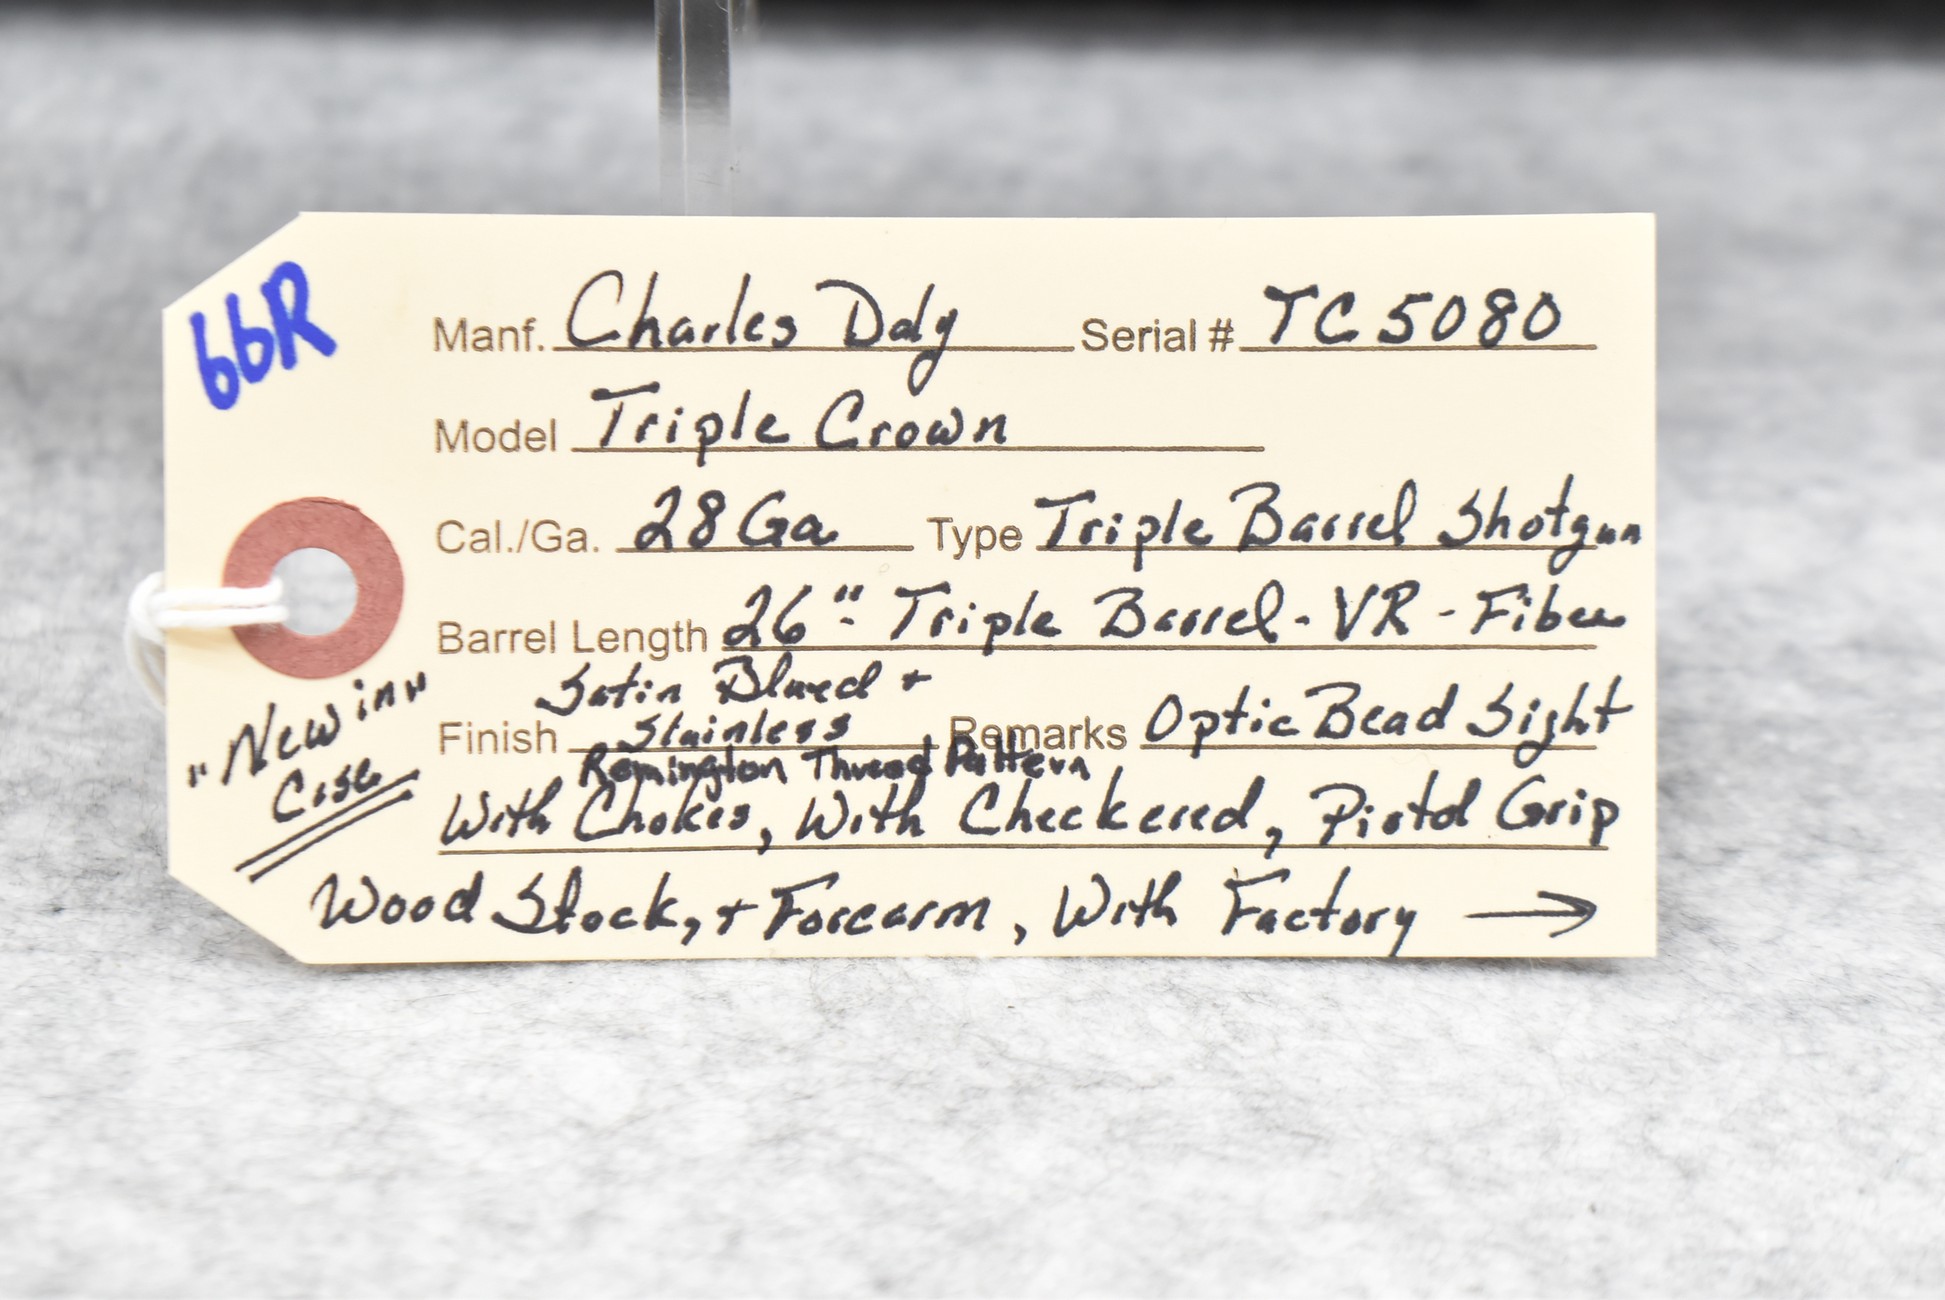 66R
Manf. Charles Daly Serial # TC5080
Model Triple Crown
Cal./Ga. 28 Ga Type Triple Barrel Shotgun
Barrel Length 26" - Triple Barrel - VR - Fiber
Satin Blued +
Finish Stainless Remarks Optic Bead Sight
Remington Thread Pattern
With Chokes, With Checkered, Pistol Grip
Wood Stock, + Forearm, With Factory →
"New in"
Case